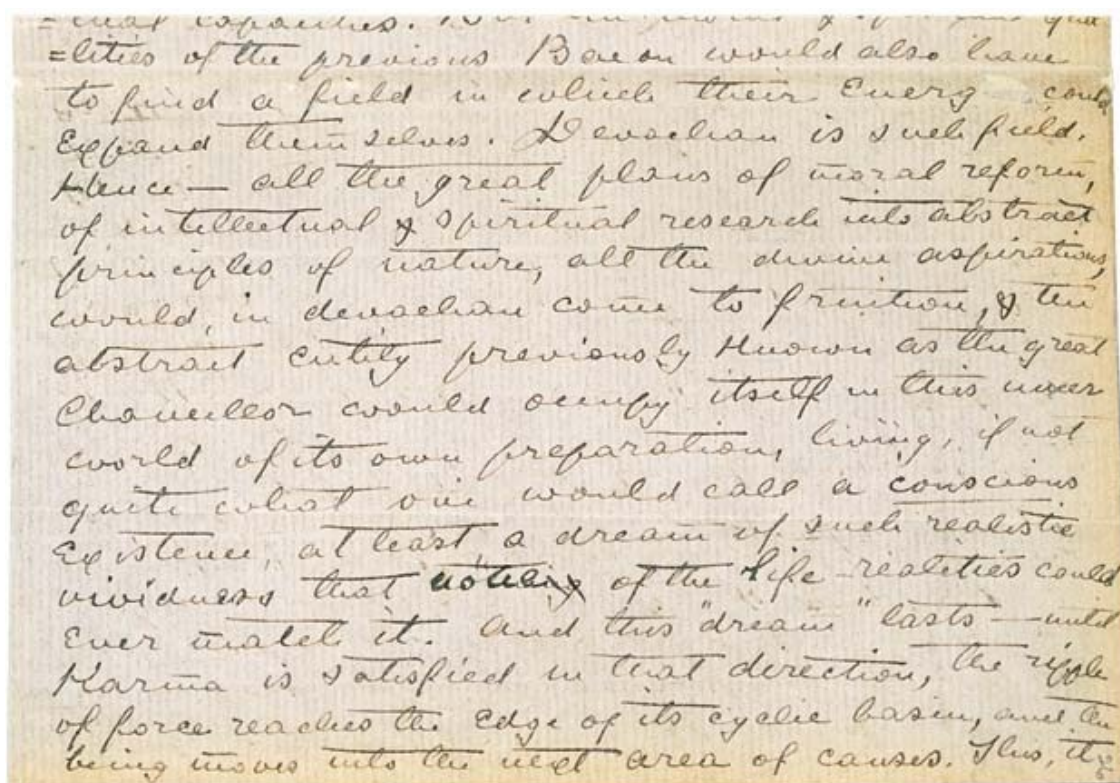 =tual capacities. But the moral & spiritual qua
=lities of the previous Bacon would also have
to find a field in which their Energ could
Expand themselves. Devachan is such field.
Hence — all the great plans of moral reform,
of intellectual & spiritual research into abstract
principles of nature, all the divine aspirations,
would, in devachan come to fruition, & the
abstract entity previously known as the great
Chancellor would occupy itself in this inner
world of its own preparation, living, if not
quite what one would call a conscious
Existence, at least, a dream of such realistic
vividness that nothing of the life-realities could
Ever match it. And this "dream" lasts — until
Karma is satisfied in that direction, the ripple
of force reaches the Edge of its cyclic basin, and the
being moves into the next area of causes. This, it